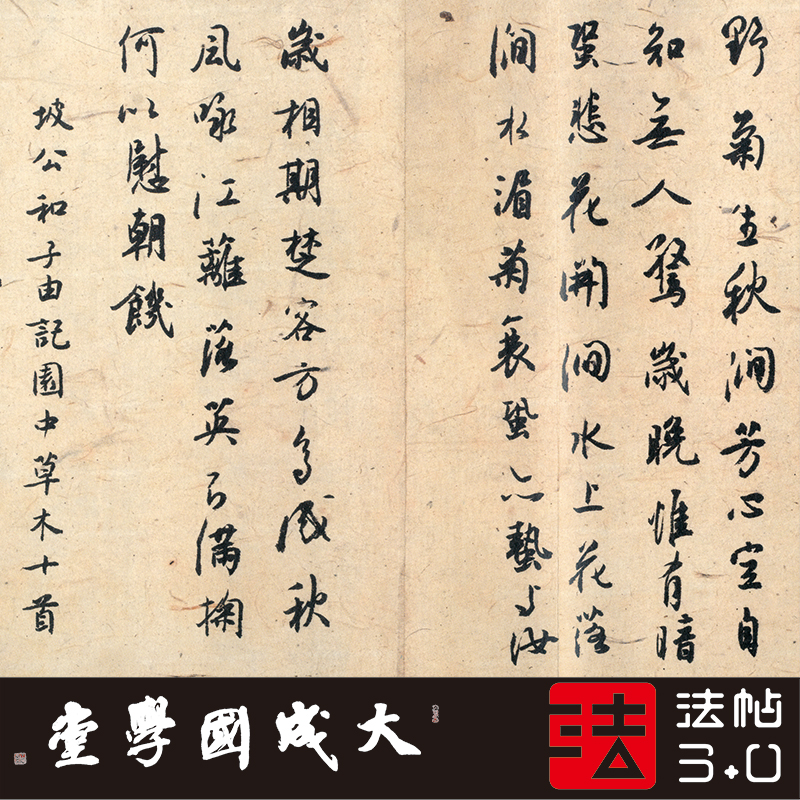 野菊生秋澗芳心空自
知無人驚歲晚惟有暗
蛩悲花開澗水上花落
澗水湄菊衰蛩亦蟄与汝
歲相期楚客方多感秋
風咏江蘺落英不滿掬
何以慰朝饑
坡公和子由記園中草木十首
大成國學堂
法
法帖
3.0